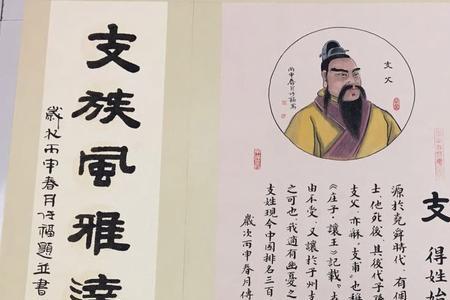 支 得姓始
源於堯舜時代、有個
士、他死後、其後代子孫
支父、亦稱、支甫、也稱
《莊子、讓王》記載、
由不受、又讓於子州支
之可也、我適有幽憂之
支姓現今中國排名三百
歲次丙申春月傳
支父
丙申春月
支族風雅達
丙申春月 福題並書